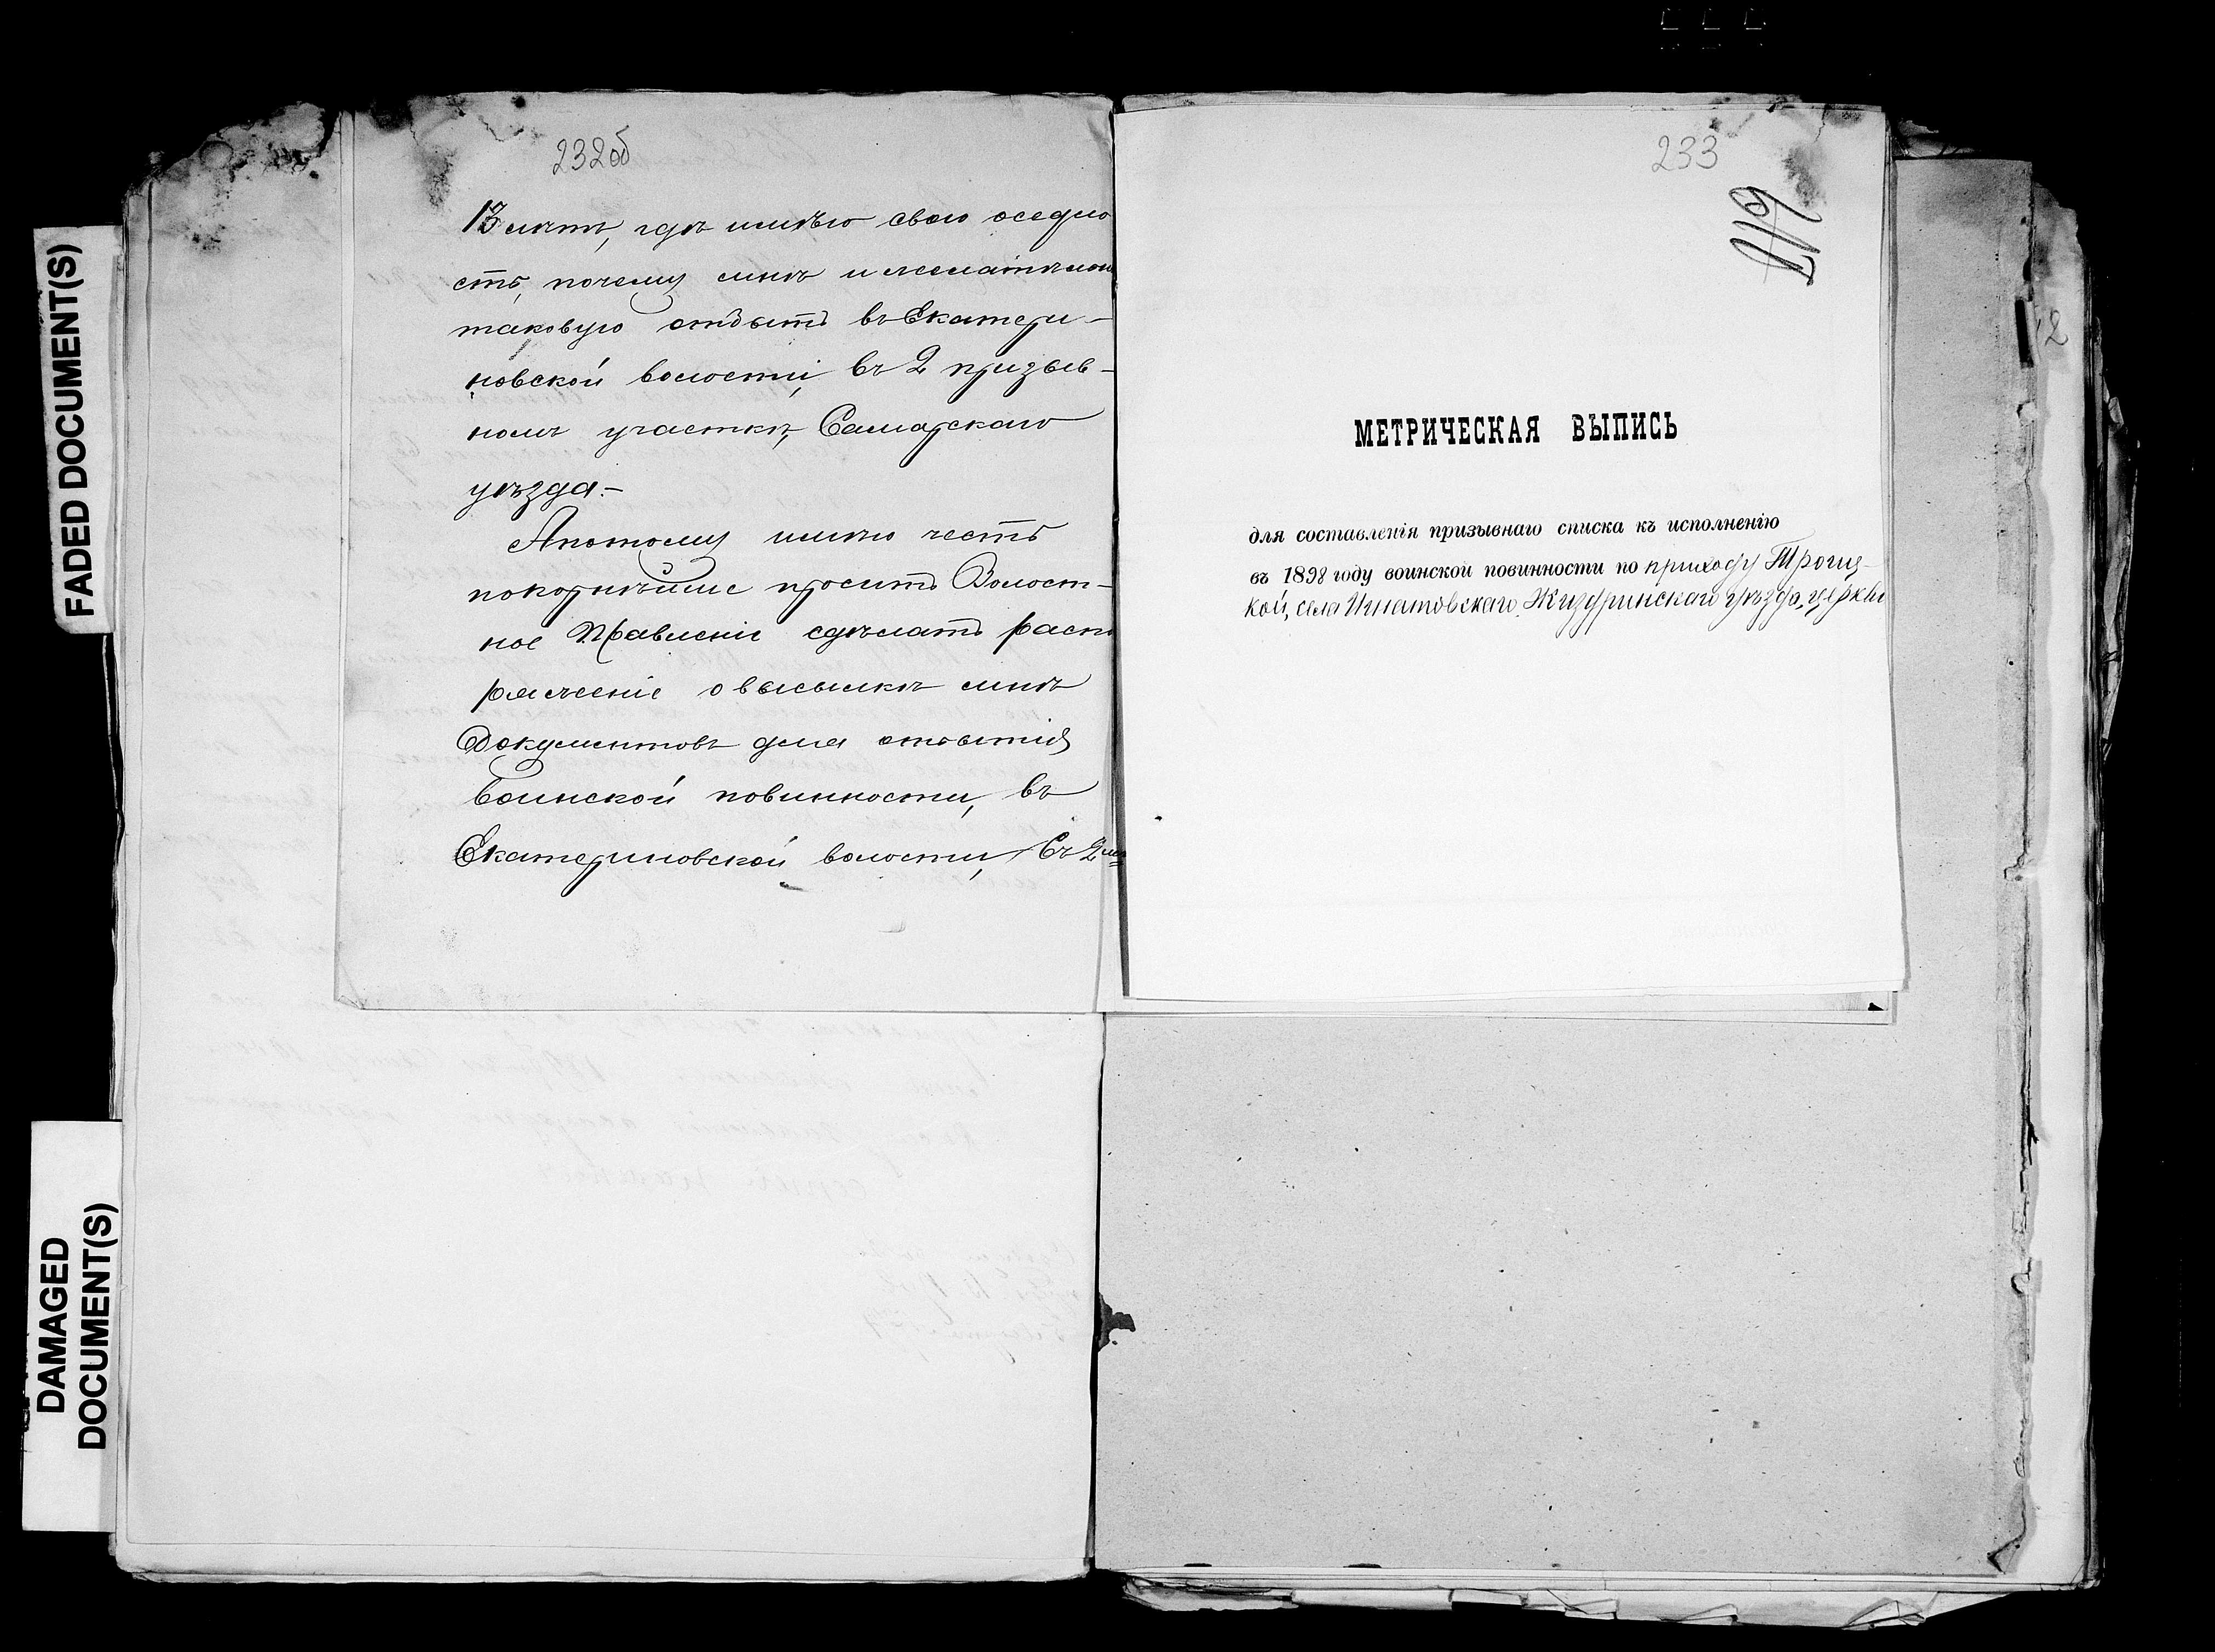 FADED DOCUMENT(S)
DAMAGED
DOCUMENT(S)
232об
13 лѣтъ, гдѣ имѣю свою оседло
сть, почему мнѣ и желательно
таковую отбыть въ Екатери-
новской волости, въ 2 призыв-
номъ участкѣ, Самарскаго
уѣзда.-
А потому имѣю честь
покорнѣйше просить Волост-
ное Правленіе сдѣлать распо
ряженіе о высылкѣ мнѣ
документовъ для отбытія
воинской повинности, въ
Екатериновской волости, въ 2мъ
233
МЕТРИЧЕСКАЯ ВЫПИСЬ
для составленія призывнаго списка къ исполненію
въ 1898 году воинской повинности по приходу Троиц-
кой, села Игнатовскаго Жиздринскаго уѣзда, церкви
12